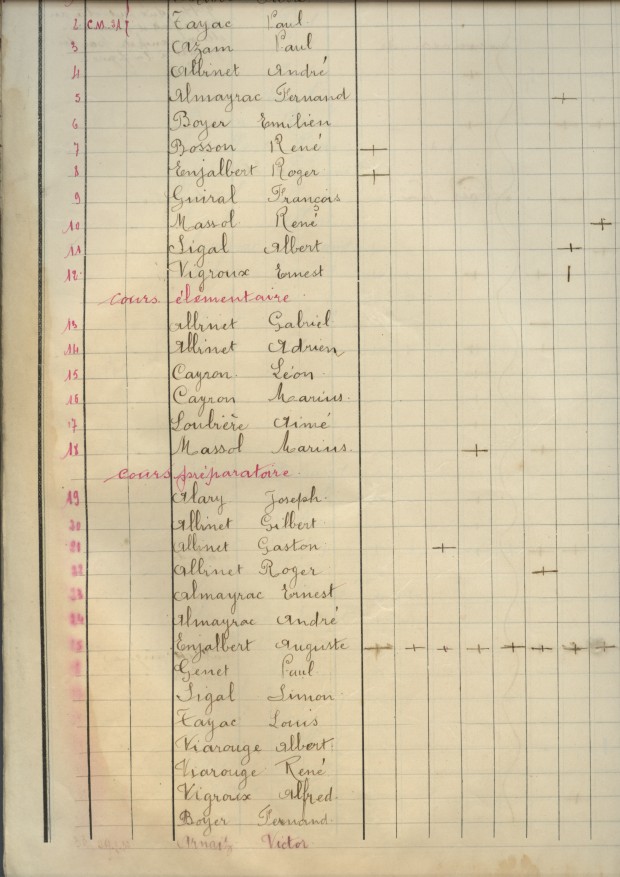 2 CM Tayac Paul
3 Azam Paul
4 Albinet André
5 Almayrac Fernand
6 Boyer Emilien
7 Bosson René
8 Enjalbert Roger
9 Guiral François
10 Massol René
11 Sigal Albert
12 Vigroux Ernest
Cours élémentaire
13 Albinet Gabriel
14 Albinet Adrien
15 Cayron Léon
16 Cayron Marius
17 Loubière Aimé
18 Massol Marius
Cours préparatoire
19 Alary Joseph
20 Albinet Gilbert
21 Albinet Gaston
22 Albinet Roger
23 Almayrac Ernest
24 Almayrac André
Enjalbert Auguste
Genet Paul
Sigal Simon
Tayac Louis
Viarouge Albert
Viarouge René
Vigroux Alfred
Boyer Fernand
Victor